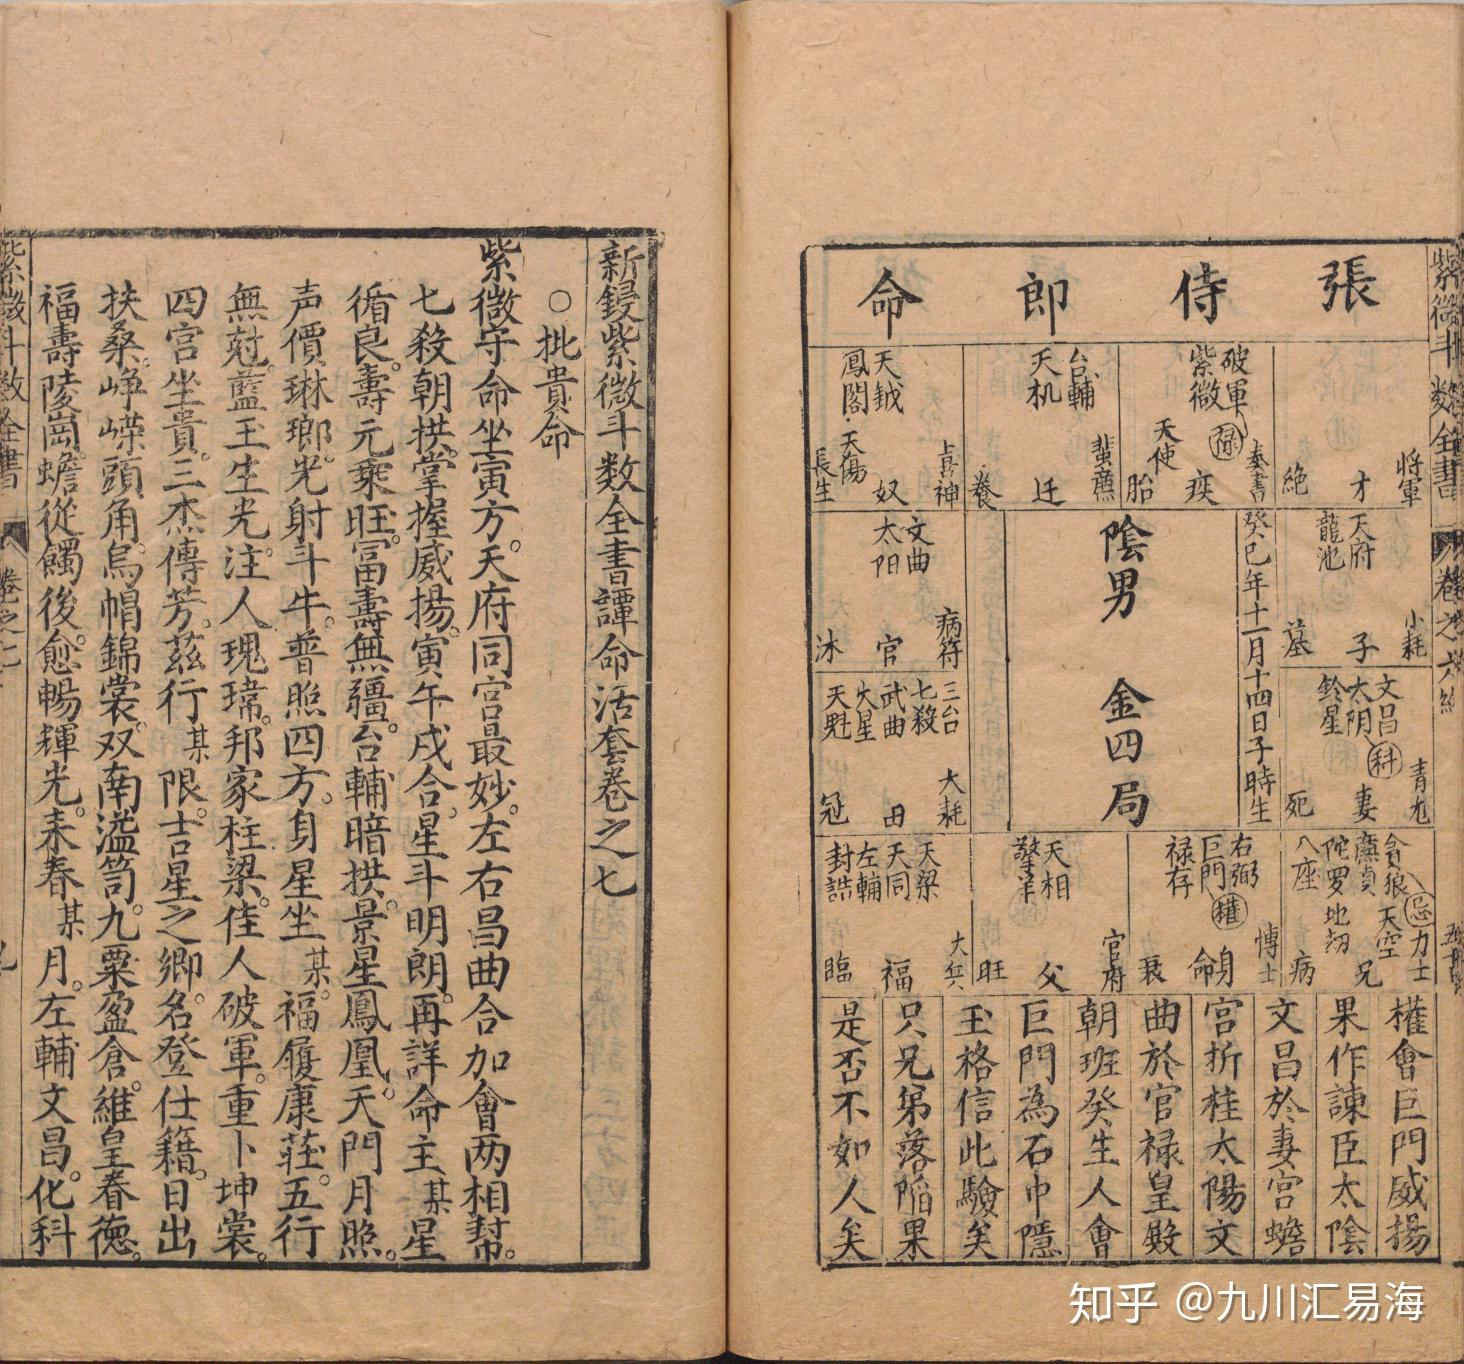 紫微斗數全書
卷之六終
張侍郎命
將軍
才
絕
破軍
紫微
祿
天使
奏書
疾
胎
台輔
天机
蜚廉
迁
養
天鉞
鳳閣
天傷
喜神
奴
長生
天府
龍池
小耗
子
墓
文昌
太阴
鈴星
科
青龙
妻
死
癸巳年十一月十四日子時生
陰男
金四局
文曲
太阳
病符
官
沐
三台
七殺
武曲
火星
天魁
大耗
田
冠
貪狼
廉貞
陀罗
八座
忌
天空
地刼
力士
兄
病
右弼
巨門
禄存
權
博士
身
命
衰
天相
擎羊
官府
父
旺
天梁
天同
左輔
封誥
大兵
福
臨
權會巨門威揚
果作諫臣太陰
文昌於妻宮蟾
宮折桂太陽文
曲於官禄皇殿
朝班癸生人會
巨門為石中隱
玉格信此驗矣
只兄弟落陷果
是否不如人矣
新鋟紫微斗数全書譚命活套卷之七
○批貴命
紫微守命坐寅方。天府同宮最妙。左右昌曲合加會两相幫。
七殺朝拱。掌握威揚。寅午戌合。星斗明朗。再詳命主某星
循良。壽元乘旺。冨壽無疆。台輔暗拱。景星鳳凰。天門月照。
声價琳瑯。光射斗牛。普照四方。身星坐某。福履康莊。五行
無尅。藍玉生光。注人瑰瑋。邦家柱梁。佳人破軍。重卜坤裳。
四宮坐貴。三杰傳芳。茲行某限。吉星之鄉。名登仕籍。日出
扶桑。崢嶸頭角。烏帽錦裳。双南溢笥。九粟盈倉。維皇春德。
福壽陵崗。蟾從觸後。愈暢輝光。来春某月。左輔文昌。化科
紫微斗數全書
卷之七